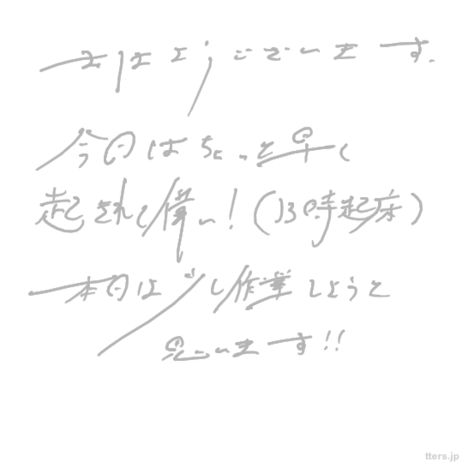 おはようございます.
今日はちょっと早く
起きれて偉い!(13時起床)
本日は少し作業しようと
思います!!
tters.jp